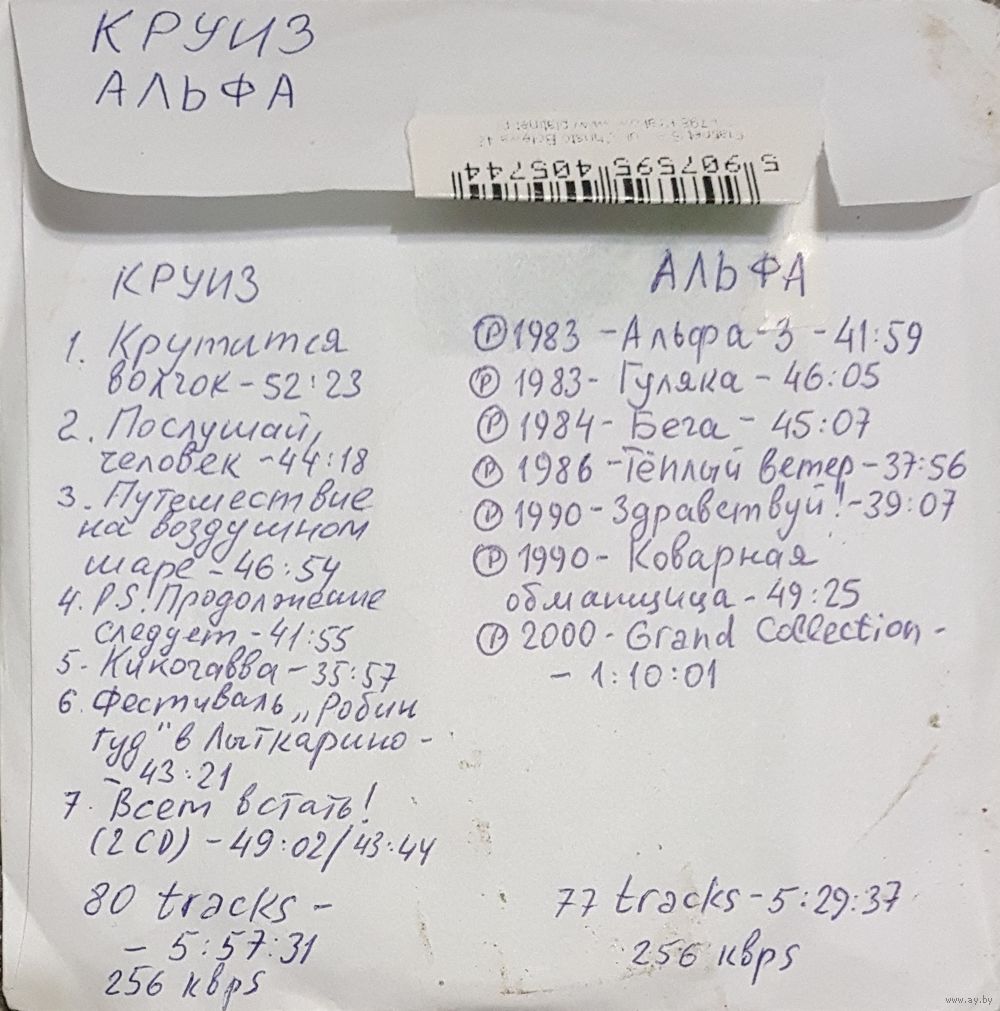 КРУИЗ
АЛЬФА
5 907595 405744
КРУИЗ
1. Крутится
волчок - 52:23
2. Послушай,
человек - 44:18
3. Путешествие
на воздушном
шаре - 46:54
4. P.S. Продолжение
следует - 41:55
5. Кикогавва - 35:57
6. Фестиваль „Робин
Гуд" в Лыткарино -
- 43:21
7. Всем встать!
(2 CD) - 49:02/43:44
80 tracks -
- 5:57:31
256 квps
АЛЬФА
Ⓟ 1983 - Альфа-3 - 41:59
Ⓟ 1983 - Гуляка - 46:05
Ⓟ 1984 - Бега - 45:07
Ⓟ 1986 - Тёплый ветер - 37:56
Ⓟ 1990 - Здравствуй! - 39:07
Ⓟ 1990 - Коварная
обманщица - 49:25
Ⓟ 2000 - Grand Collection -
- 1:10:01
77 tracks - 5:29:37
256 квps
www.ay.by